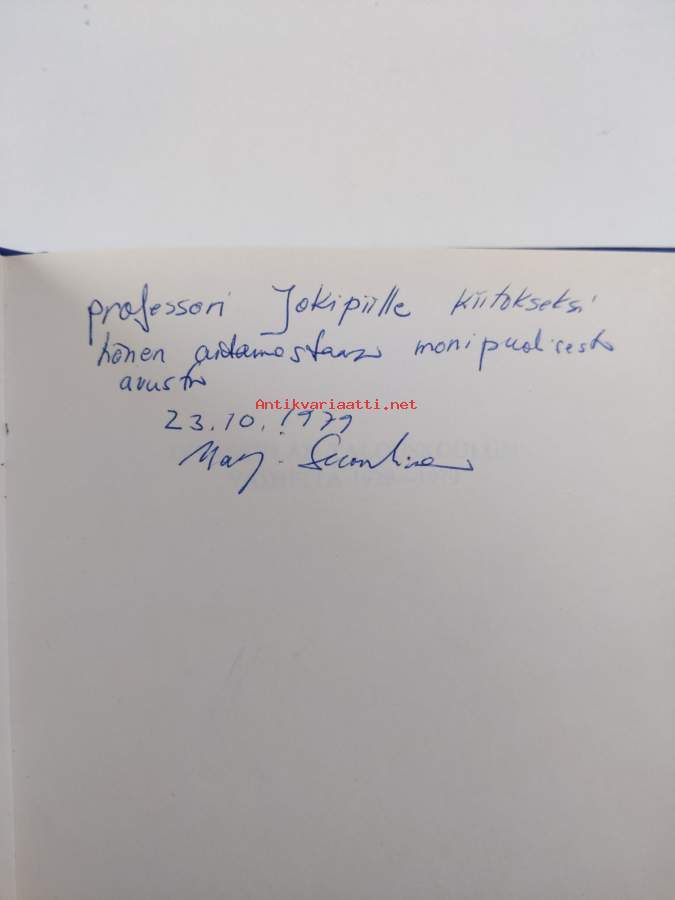 professori Jokipiille kiitokseksi
hänen antamastaan monipuolisesta
avusta
Antikvariaatti.net
23.10.1979